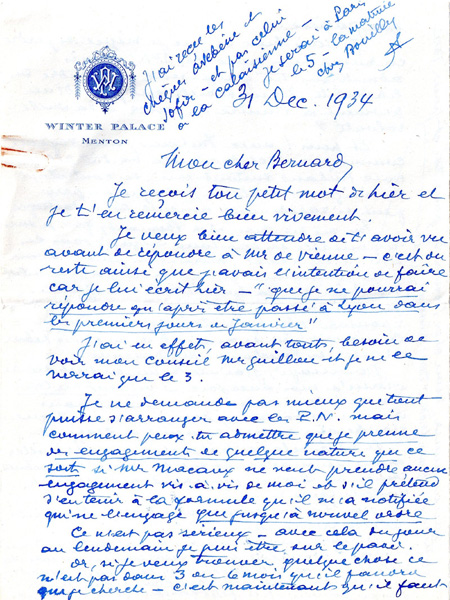 J'ai reçu les
chèques et
et pas celui
Je serai à Paris
le 5 - la matinée
chez
31 Dec. 1934
WINTER PALACE
MENTON
Mon cher Bernard,
Je reçois ton petit mot d'hier et
je t'en remercie bien vivement.
Je veux bien attendre de t'avoir vu
avant de répondre à Mr de Vienne - c'est du
reste ainsi que j'avais l'intention de faire
car je lui écrit hier - "que je ne pourrai
répondre qu'après être passé à Lyon dans
les premiers jours de Janvier"
J'ai en effet, avant tout, besoin de
voir mon conseil Mr Guillon et je ne le
verrai que le 3.
Je ne demande pas mieux que tout
puisse s'arranger avec les P.N. mais
comment peux-tu admettre que je prenne
des engagements de quelque nature que ce
soit si Mr Macaux ne veut prendre aucun
engagement vis à vis de moi et s'il prétend
s'en tenir à la formule qu'il m'a notifiée
qu'il ne s'engage que jusqu'à nouvel ordre
Ce n'est pas sérieux - avec cela du jour
au lendemain je puis être sur le pavé.
Or, si je veux trouver quelque chose ce
n'est pas dans 3 ou 6 mois qu'il faudra
que je cherche - c'est maintenant qu'il faut